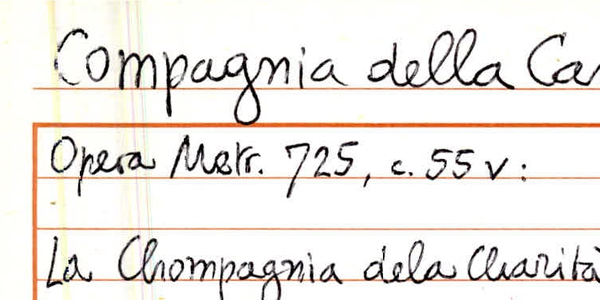 Compagnia della Ca
Opera Metr. 725, c. 55 v:
La Chompagnia dela Charità